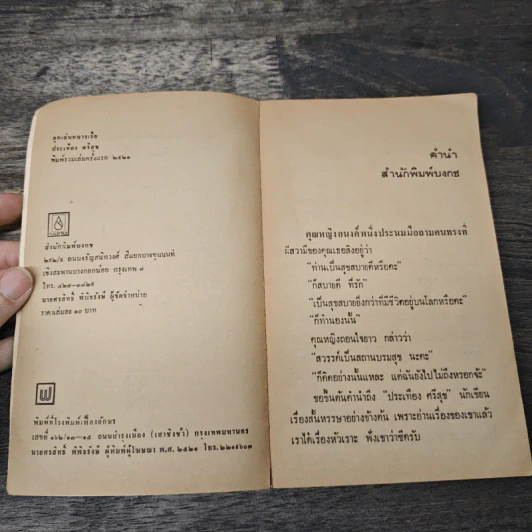 ลูกเล่นทนายเรือ
ประเทือง ศรีสุข
พิมพ์รวมเล่มครั้งแรก ๒๕๒๑
บงกช
สำนักพิมพ์บงกช
ถนนจรัญสนิทวงศ์ สี่แยกบางขุนนนท์
เชิงสะพานบางกอกน้อย กรุงเทพ ๗
โทร.
นายศรสิทธิ์ พิพิธรังษี ผู้จัดจำหน่าย
ราคาเล่มละ ๑๐ บาท
พิมพ์ที่โรงพิมพ์เฟื่องอักษร
เลขที่ ๑๖๒/๑๓—๑๕ ถนนบำรุงเมือง (เสาชิงช้า) กรุงเทพมหานคร
นายศรสิทธิ์ พิพิธรังษี ผู้พิมพ์ผู้โฆษณา พ.ศ. ๒๕๒๑ โทร.
คำนำ
สำนักพิมพ์บงกช
คุณหญิงอนงค์หนึ่งประนมมือถามคนทรงที่
ผีสามีของคุณเธอสิงอยู่ว่า
"ท่านเป็นสุขสบายดีหรือคะ"
"ก็สบายดี ที่รัก"
"เป็นสุขสบายยิ่งกว่าที่มีชีวิตอยู่บนโลกหรือคะ"
"ก็ทำนองนั้น"
คุณหญิงถอนใจยาว กล่าวว่า
"สวรรค์เป็นสถานบรมสุข นะคะ"
"ก็คิดอย่างนั้นแหละ แต่ฉันยังไปไม่ถึงหรอกจ้ะ"
ขอขึ้นต้นคำนำถึง "ประเทือง ศรีสุข" นักเขียน
เรื่องสั้นหรรษาอย่างข้างต้น เพราะอ่านเรื่องของเขาแล้ว
เราได้เรื่องหัวเราะ ฟังเขาว่าซีครับ